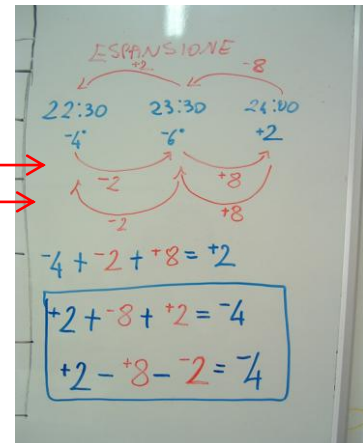 ESPANSIONE
+2 -8
22:30 23:30 24:00
-4° -6° +2
-2 +8
-2 +8
-4 + -2 + +8 = +2
+2 + -8 + +2 = -4
+2 - +8 - -2 = -4